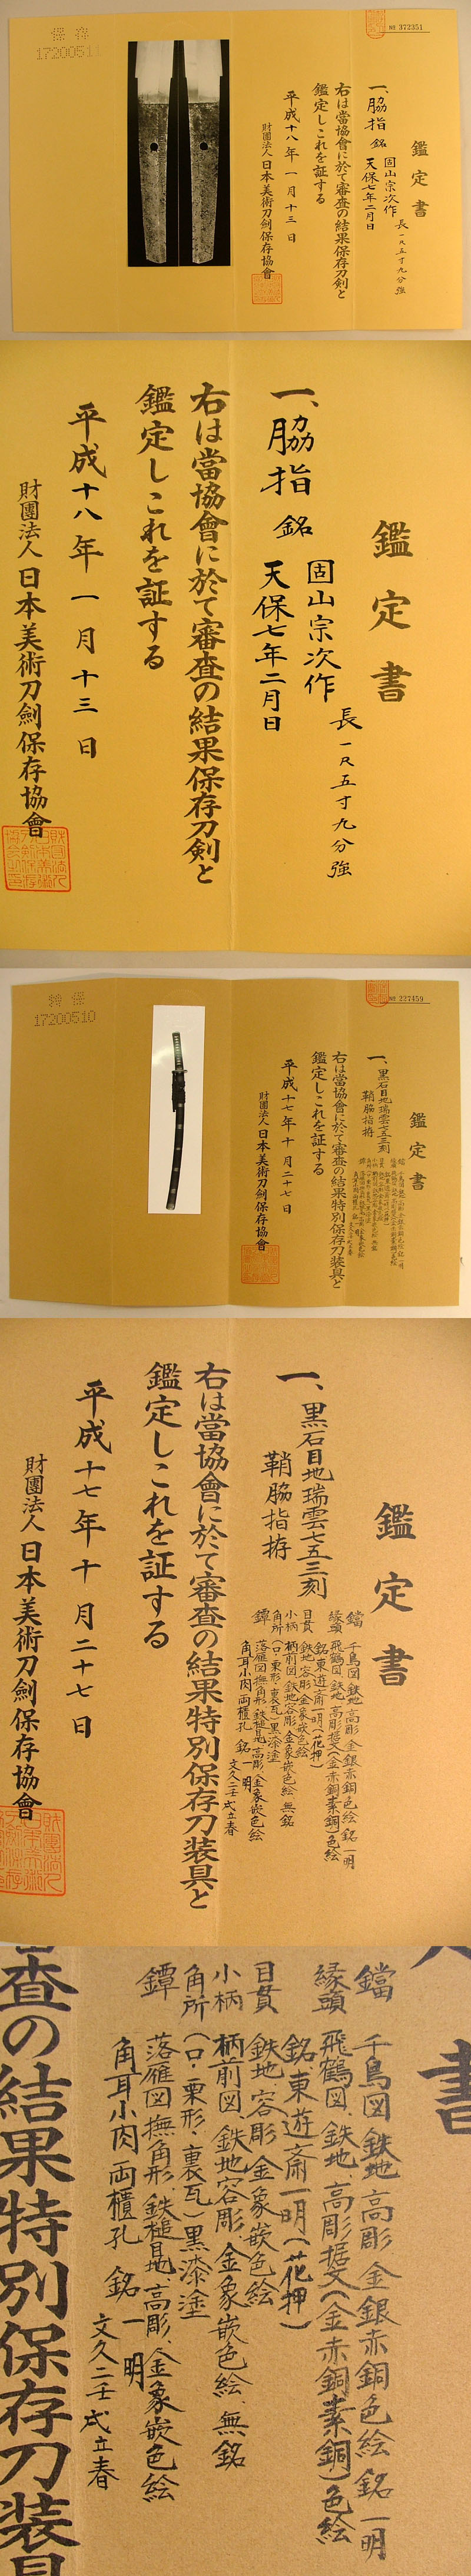 № 372351
鑑定書
一、脇指 銘 固山宗次作
天保七年二月日
長一尺五寸九分強
右は當協會に於て審査の結果保存刀剣と
鑑定しこれを証する
平成十八年一月十三日
財團法人日本美術刀劍保存協會
保存
17200511
鑑定書
一、脇指 銘 固山宗次作
天保七年二月日
長一尺五寸九分強
右は當協會に於て審査の結果保存刀剣と
鑑定しこれを証する
平成十八年一月十三日
財團法人日本美術刀劍保存協會
№ 227459
鑑定書
一、黒石目地瑞雲七五三刻
鞘脇指拵
右は當協會に於て審査の結果特別保存刀装具と
鑑定しこれを証する
平成十七年十月二十七日
財團法人日本美術刀劍保存協會
特保
17200510
鑑定書
一、黒石目地瑞雲七五三刻
鞘脇指拵
鐺 千鳥図 鉄地 高彫 金銀赤銅色絵 銘 一明
縁頭 飛鶴図、鉄地、高彫据文(金赤銅素銅)色絵
銘、東遊斎一明(花押)
目貫 鉄地 容彫 金象嵌色絵
小柄 柄前図 鉄地容彫、金象嵌色絵、無銘
角所 (口・栗形・裏瓦)黒漆塗
鐔 落雁図 撫角形、鉄槌目地、高彫、金象嵌色絵
角耳小肉 両櫃孔 銘 一明
文久二壬戌立春
右は當協會に於て審査の結果特別保存刀装具と
鑑定しこれを証する
平成十七年十月二十七日
財團法人日本美術刀劍保存協會
書
鐺 千鳥図 鉄地 高彫 金銀赤銅色絵 銘 一明
縁頭 飛鶴図、鉄地、高彫据文(金赤銅素銅)色絵
銘、東遊斎一明(花押)
目貫 鉄地 容彫 金象嵌色絵
小柄 柄前図 鉄地容彫、金象嵌色絵、無銘
角所 (口・栗形・裏瓦)黒漆塗
鐔 落雁図 撫角形、鉄槌目地、高彫、金象嵌色絵
角耳小肉 両櫃孔 銘 一明
文久二壬戌立春
査の結果特別保存刀装具